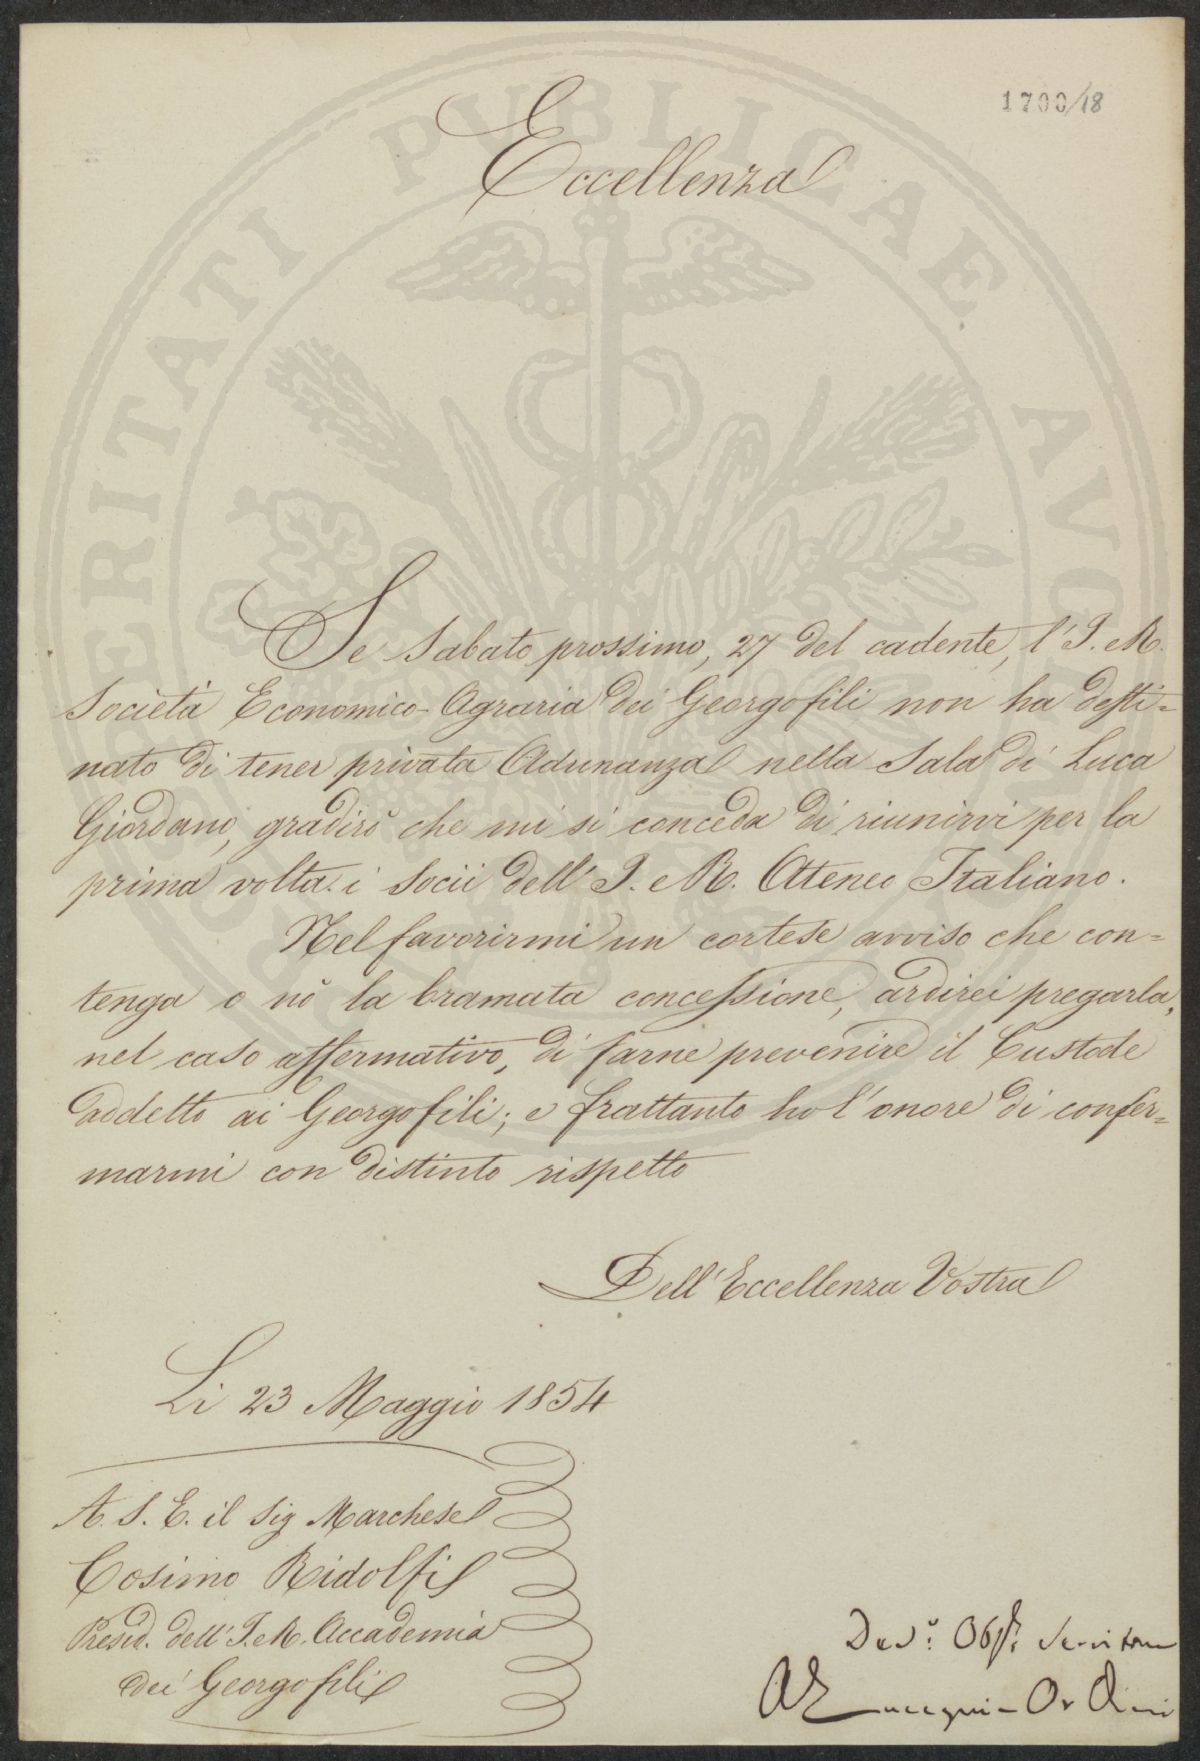 1700/18
PROSPERITATI PUBLICAE AVGENDAE
Eccellenza
Se Sabato prossimo, 27 del cadente, l'I. e R.
Società Economico-Agraria dei Georgofili non ha desti=
nato di tener privata Adunanza nella Sala di Luca
Giordano, gradirò che mi si conceda di riunirvi per la
prima volta i Socii dell'I. e R. Ateneo Italiano.
Nel favorirmi un cortese avviso che con=
tenga o nò la bramata concessione, ardirei pregarla,
nel caso affermativo, di farne prevenire il Custode
addetto ai Georgofili; e frattanto ho l'onore di confer=
marmi con distinto rispetto
Dell'Eccellenza Vostra
Li 23 Maggio 1854
A. S. E. il Sig Marchese
Cosimo Ridolfi
Presid. dell'I. e R. Accademia
dei Georgofili
Dev.º Obb.º Servitore